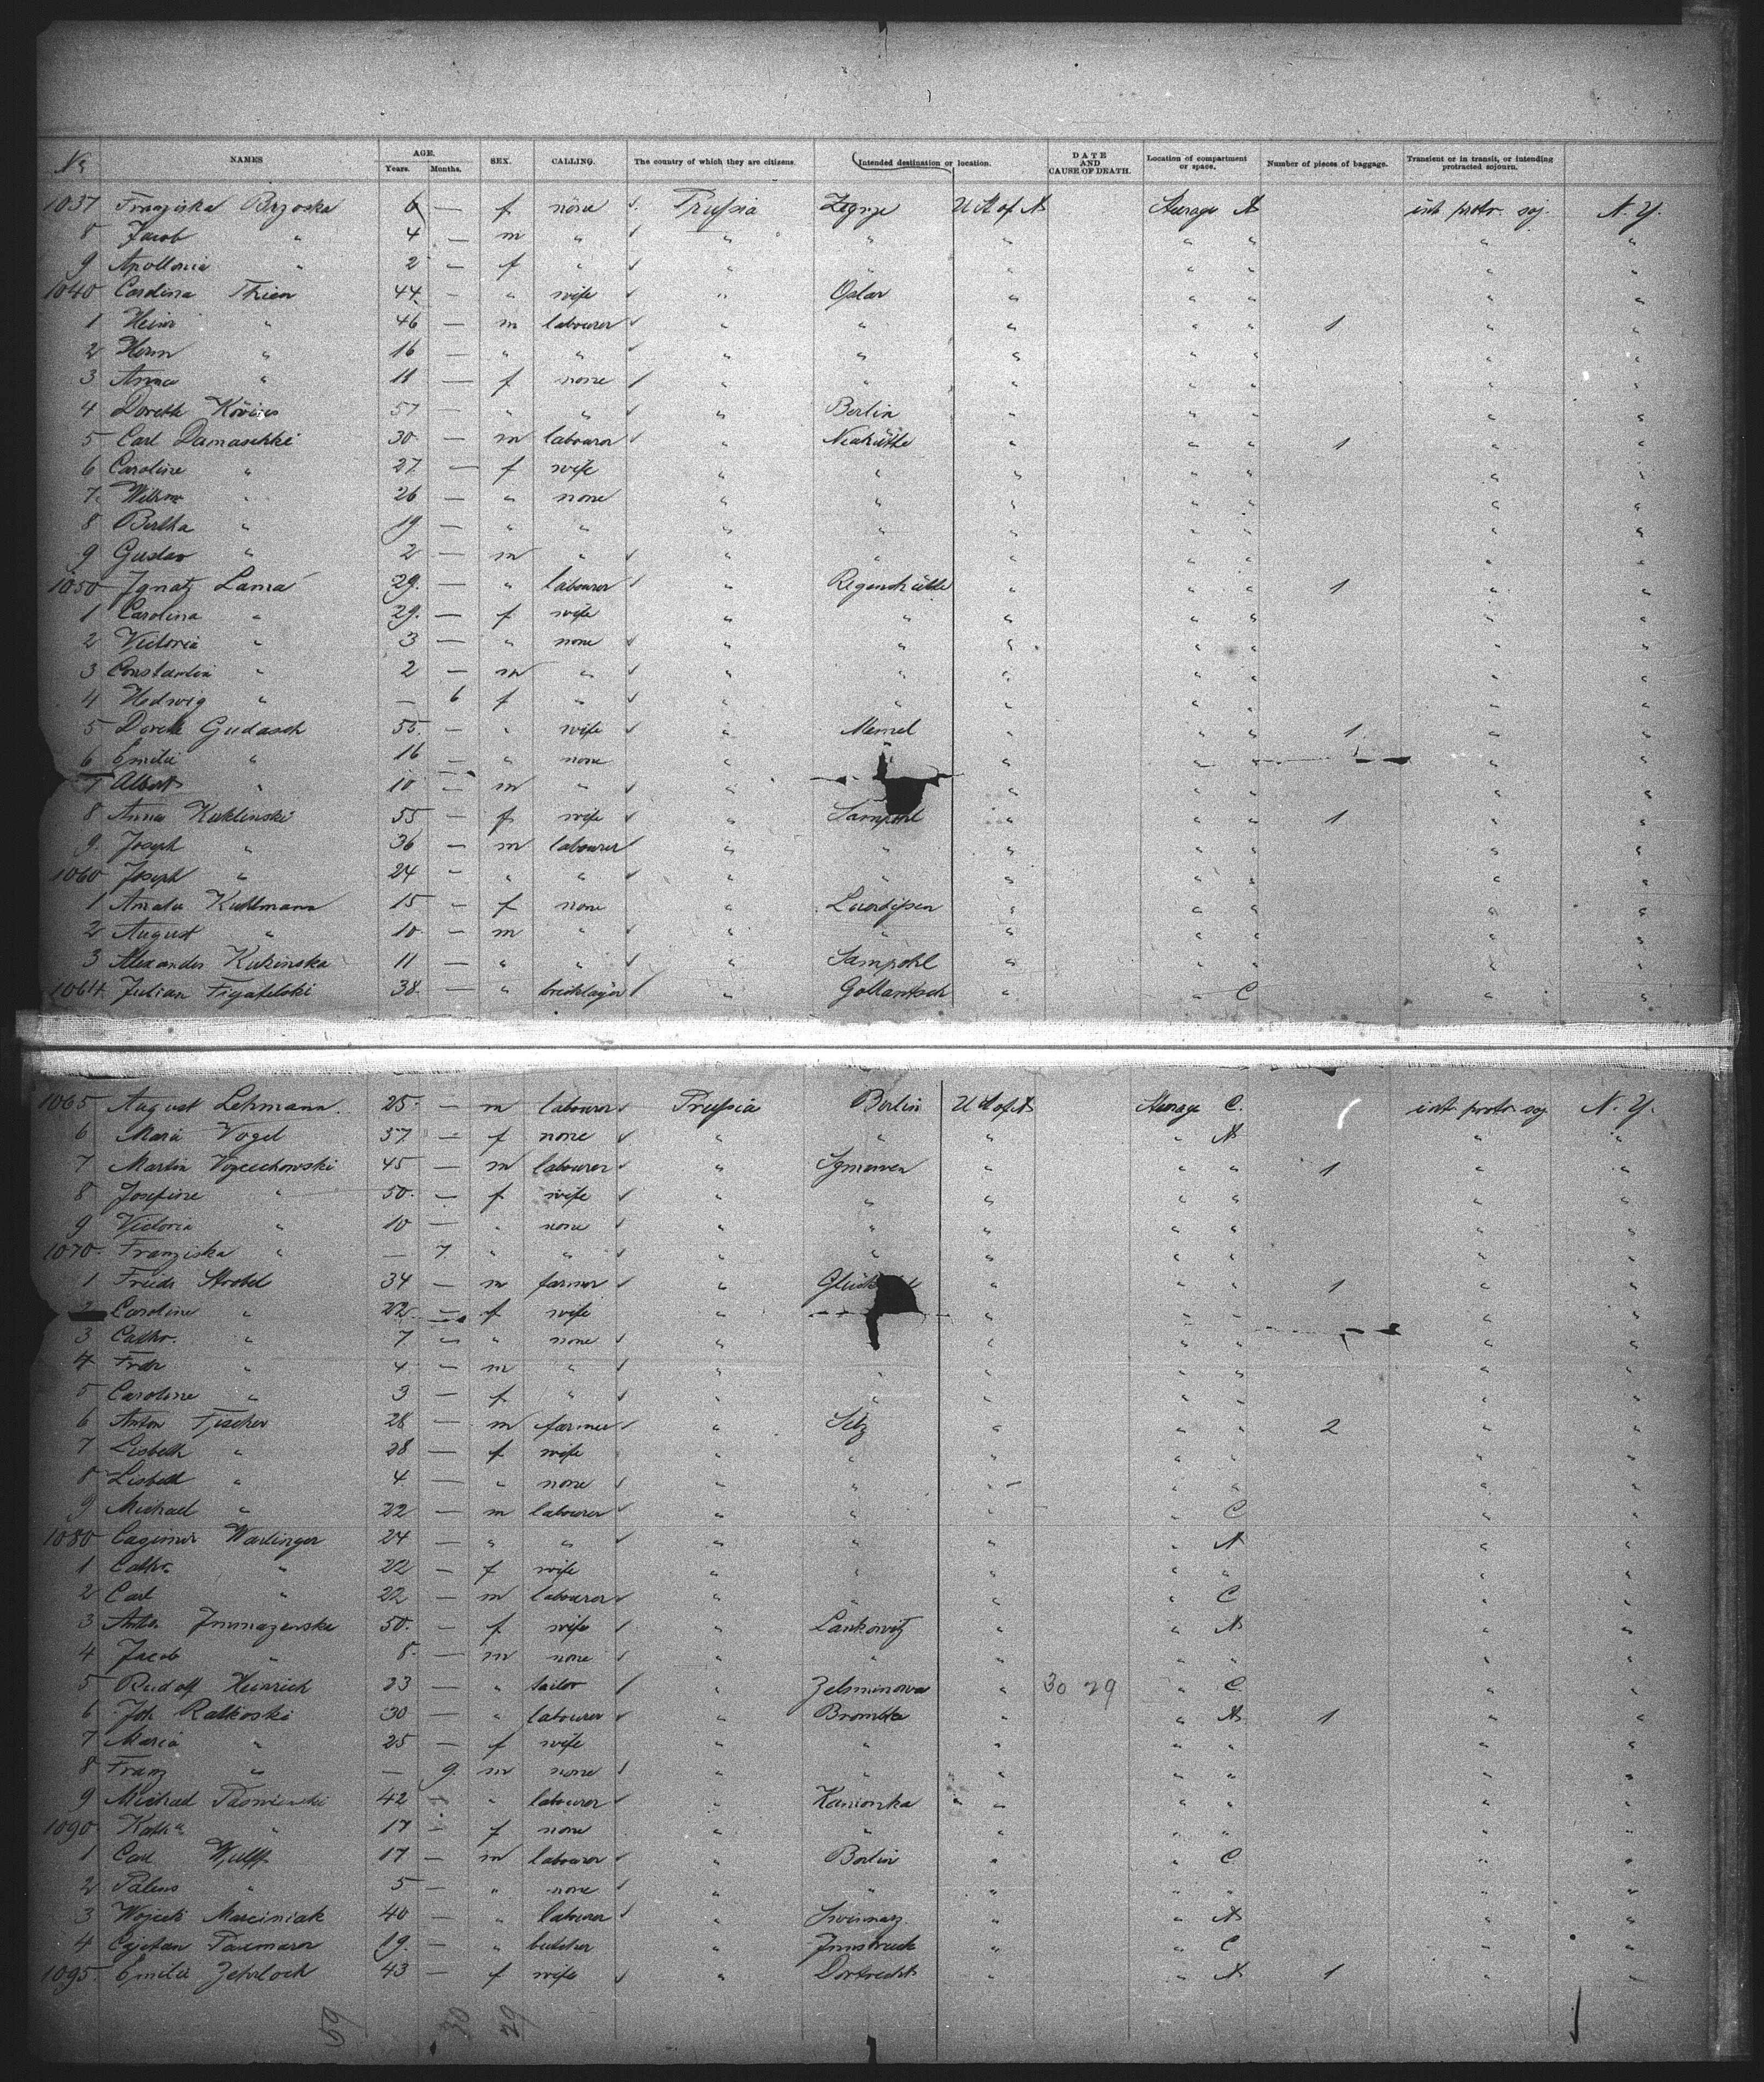 No NAMES AGE. Years. Months. SEX. CALLING. The country of which they are citizens. Intended destination or location. DATE AND CAUSE OF DEATH. Location of compartment or space. Number of pieces of baggage. Transient or in transit, or intending protracted sojourn.
1037 Franziska Brzoska 6 — f none Prussia U S of A Steerage A int. protr. soj. N. Y.
8 Jacob " 4 — m " " " " " " " "
9 Apollonia " 2 — f " " " " " " " "
1040 Carolina Thien 44 — " wife " " " " " "
1 Heinr " 46 — m labourer " " " " " 1 " "
2 Herm " 16 — " " " " " " " " "
3 Anna " 11 — f none " " " " " " "
4 Doroth 57 — " " " Berlin " " " " "
5 Carl Damaschke 30 — m labourer " Neuhütte " " " 1 " "
6 Caroline " 27 — f wife " " " " " " "
7 " 26 — " none " " " " " " "
8 Bertha " 19 — " " " " " " " " "
9 Gustav " 2 — m " " " " " " " "
1050 Ignatz Lama 29. — " labourer " " " " 1 " "
1 Carolina " 29. — f wife " " " " " " "
2 Victoria " 3 — " none " " " " " " "
3 Constantin " 2 — m " " " " " " " "
4 Hedwig " — 6 f " " " " " " " "
5 Doroth Gudasch 55. — " wife " Memel " " " 1 " "
6 Emilie " 16 — " none " " " " " "
7 Albert " 10 — m " " " " " " "
8 Anna Kuklinski 55 — f wife " Sampohl " " " 1 " "
9. Joseph " 36 — m labourer " " " " " " "
1060 Joseph " 24 — " " " " " " " " "
1 Amalie Kuhlmann 15 — f none " " " " " "
2 August " 10 — m " " " " " " " "
3 Alexander Kukinska 11 — " " " Sampohl " " " " "
1064 Julian 38 — " bricklayer " Gollantsch " " C " "
1065 August Lehmann. 25 — m labourer Prussia Berlin U S of A Steerage C. int. protr. soj N. Y.
6 Maria Vogel 37 — f none " " " " A " "
7 Martin Woyciechowski 45 — m labourer " " " " 1 " "
8 Josefine " 50. — f wife " " " " " " "
9 Victoria " 10 — " none " " " " " " "
1070 Franziska " — 7. " " " " " " " " "
1 Friedr Strobel 34 — m farmer " " " " 1 " "
2 Caroline " 22 — f wife " " " " " "
3 Cathr. " 7 — " none " " " " " "
4 Fridr " 4 — m " " " " " " " "
5 Caroline " 3 — f " " " " " " " "
6 Anton Fischer 28 — m farmer " " " " 2 " "
7 Lisbeth " 28 — f wife " " " " " " "
8 Lisbeth " 4 — " none " " " " " " "
9 Michael " 22 — m labourer " " " " C " "
1080 Casimir Warlinger 24 — " " " " " " A " "
1 Cathr " 22 — f wife " " " " " " "
2 Carl " 22 — m labourer " " " " C " "
3 50. — f wife " Lankowitz " " A " "
4 Jacob " 8. — m none " " " " " " "
5 Rudolf Heinrich 33 — " tailor " " 30 29 " C " "
6 Joh. Ratkoski 30 — " labourer " " " A 1 " "
7 Maria " 25 — f wife " " " " " " "
8 Franz " — 9. m none " " " " " " "
9 Michael 42 — " labourer " Kamionka " " " " "
1090 Kath " 17 — f none " " " " " " "
1 Carl Wulff 17 — m labourer " Berlin " " C " "
2 " 5 — " none " " " " " " "
3 Wojcech Marciniak 40 — " labourer " " " A " "
4 Cajetan 19. — " butcher " Innsbruck " " C " "
1095. Emilie Zehrloch 43 — f wife " Dortrecht " " A 1 " "
59 30 29